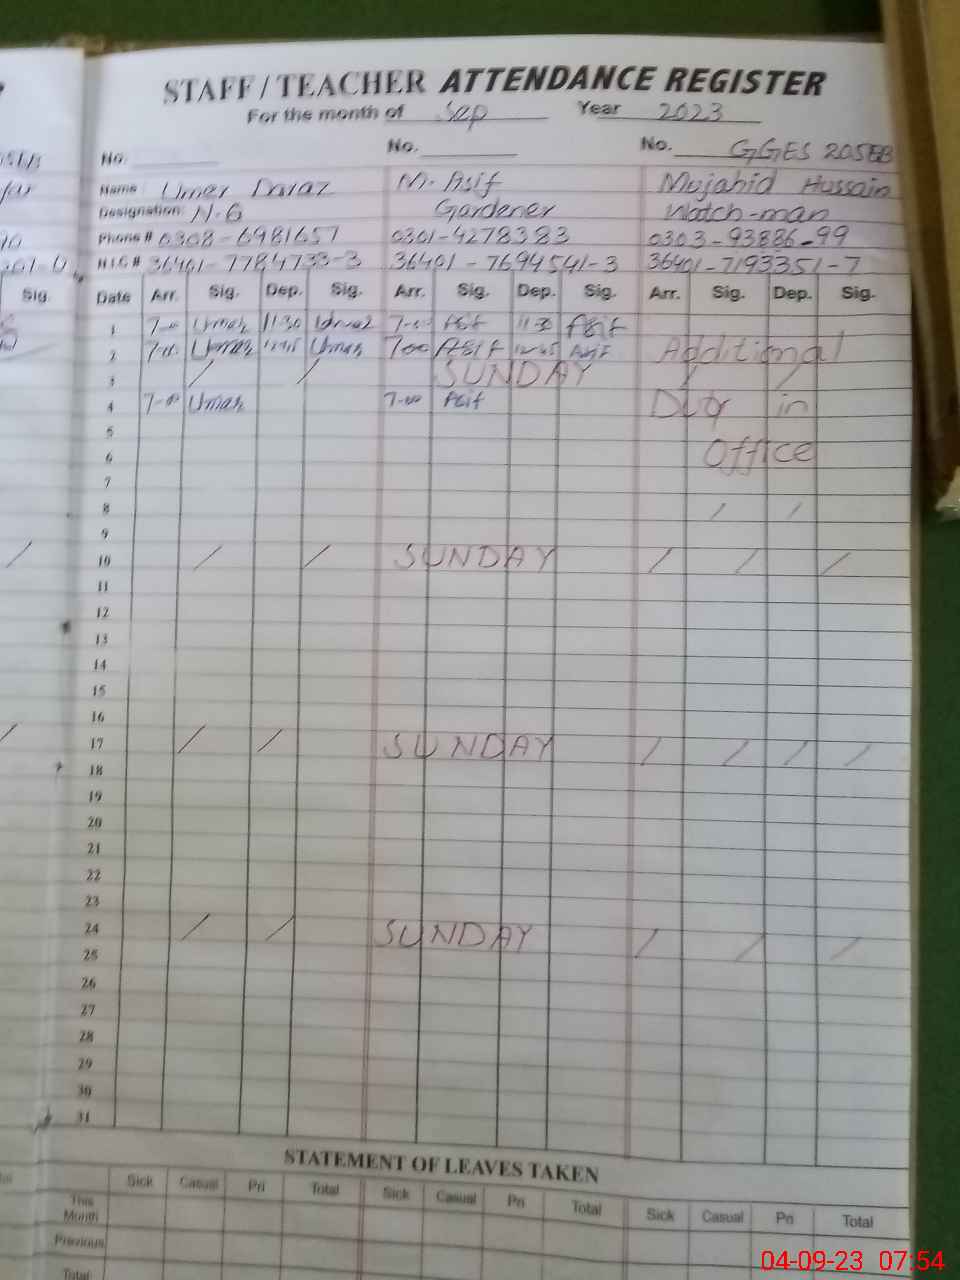 STAFF / TEACHER ATTENDANCE REGISTER
For the month of Sep Year 2023
No. No. No. GGES 205EB
Name : Umer Daraz M. Asif Mujahid Hussain
Designation: N.G Gardener Watch-man
Phone # 0308-6981657 0301-4278383 0303-93886-99
NIC# 36401-7784733-3 36401-7694541-3 36401-7193351-7
Sig. Date Arr. Sig. Dep. Sig. Arr. Sig. Dep. Sig. Arr. Sig. Dep. Sig.
1 7-00 Umar 11:30 7-00 Asif 11:30 Asif
2 7-00 Umar 12:45 Umar 7-00 Asif 12:45 Asif Additional
3 / / SUNDAY / /
4 7-00 Umar 7-00 Asif Duty in
5
6 Office
7
8 / /
9
10 / / SUNDAY / / /
11
12
13
14
15
16
17 / / SUNDAY / / / /
18
19
20
21
22
23
24 / / SUNDAY / / /
25
26
27
28
29
30
31
STATEMENT OF LEAVES TAKEN
Sick Casual Pri Total Sick Casual Pri Total Sick Casual Pri Total
This Month
Previous
Total
04-09-23 07:54